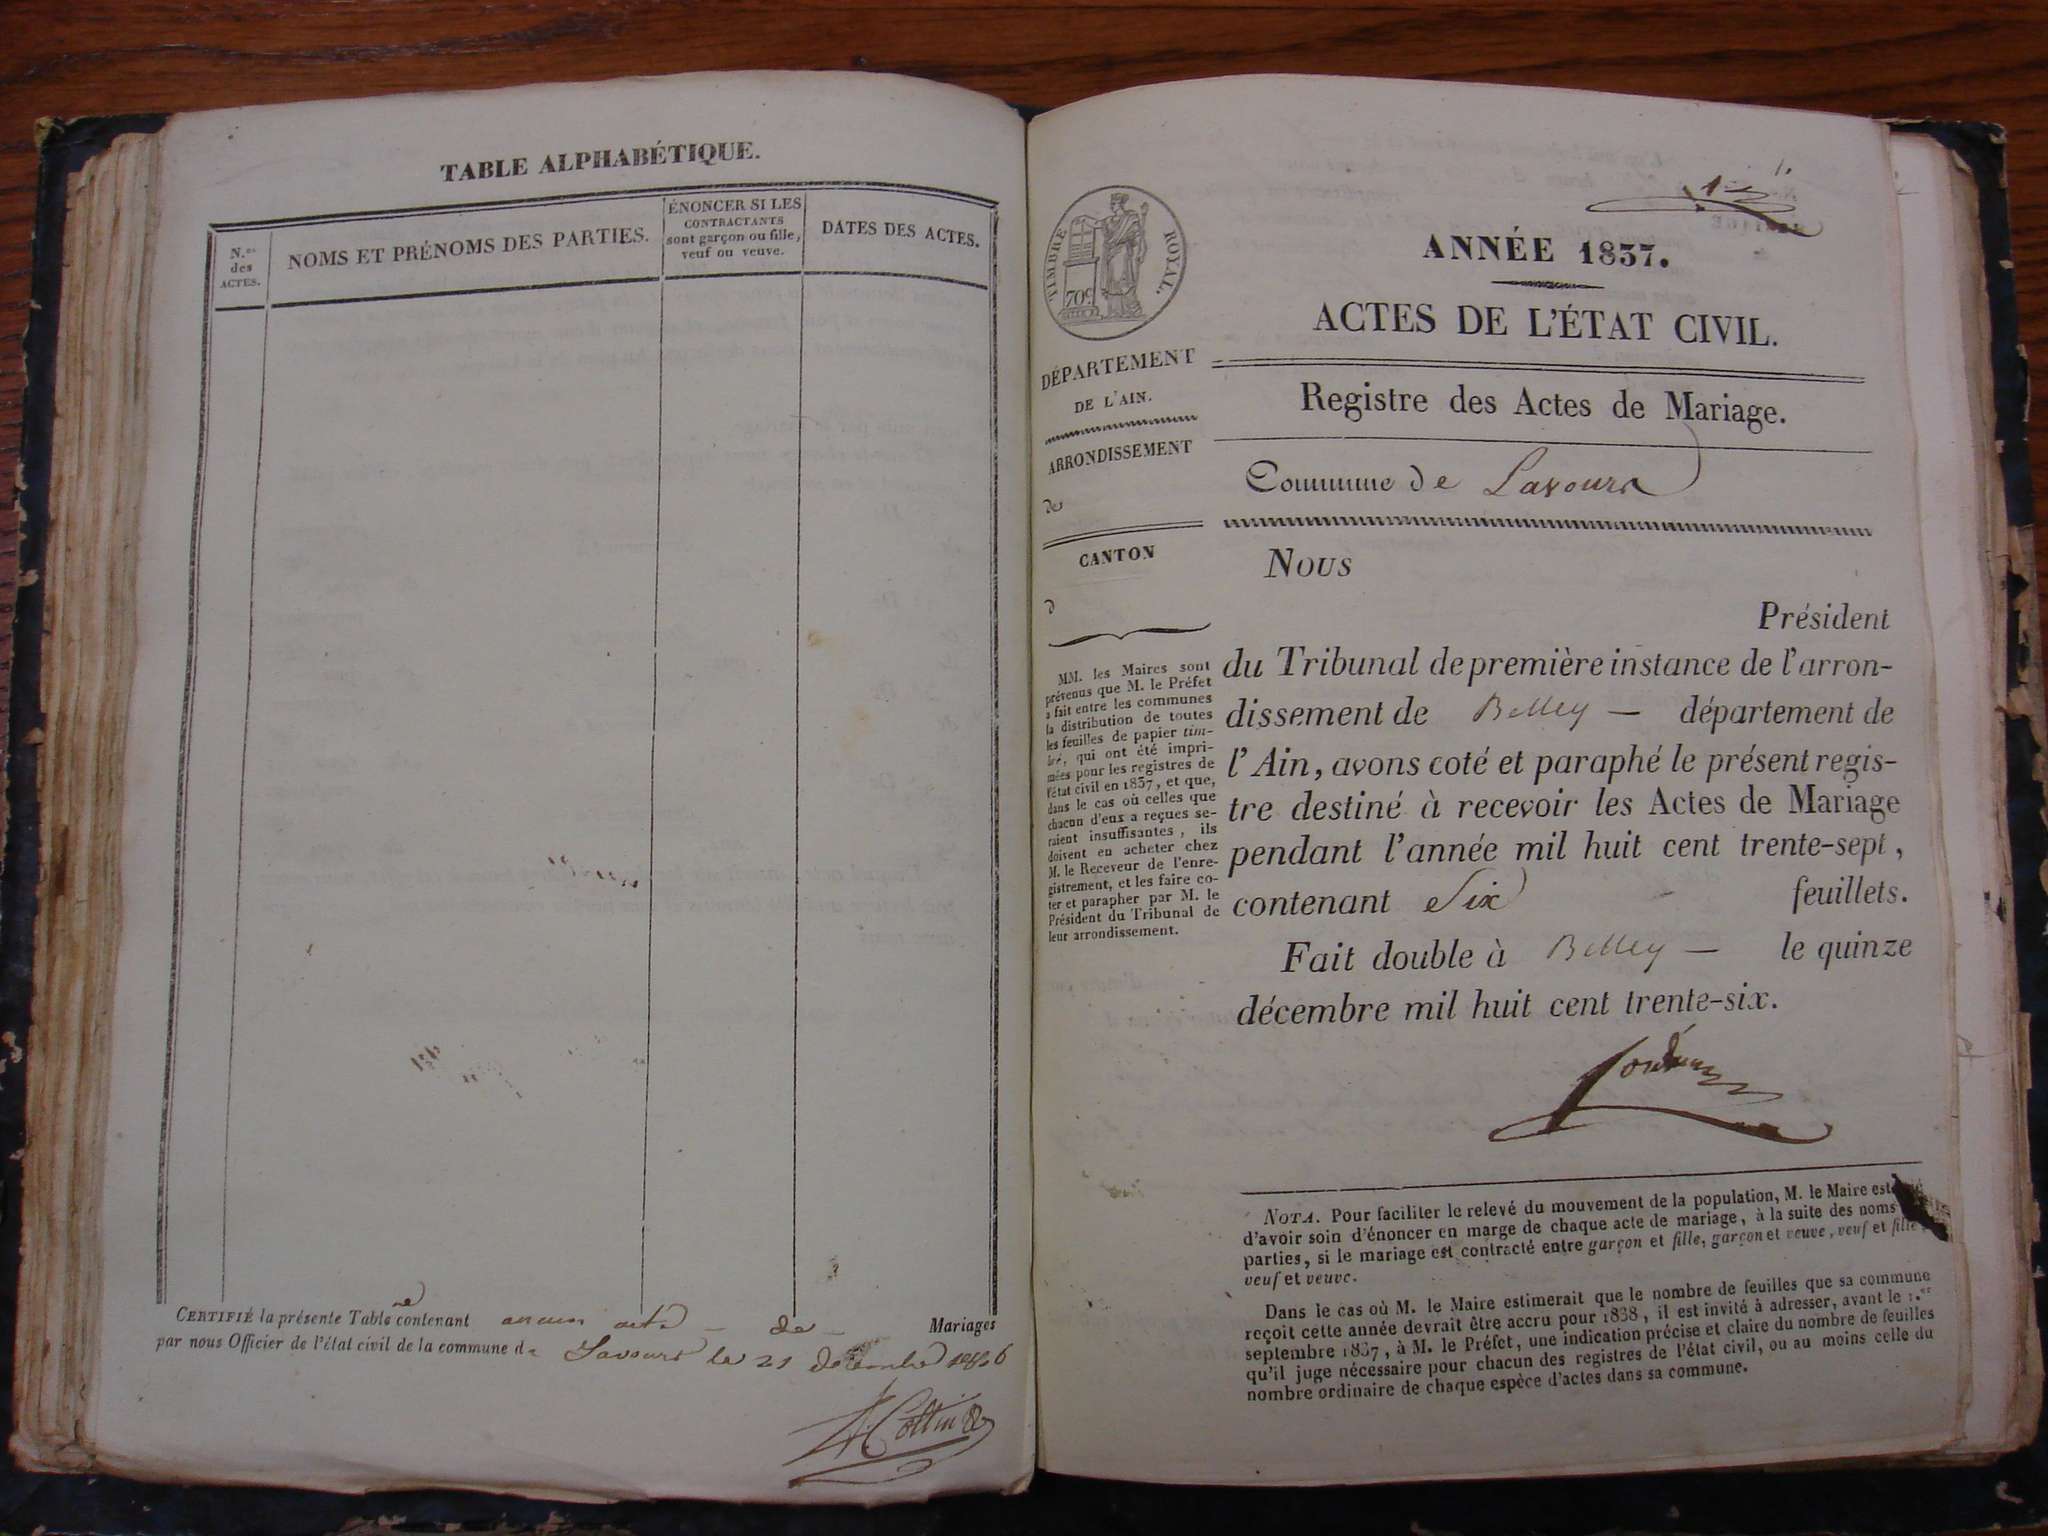 TABLE ALPHABÉTIQUE.
N.os
des
ACTES.
NOMS ET PRÉNOMS DES PARTIES.
ÉNONCER SI LES
CONTRACTANTS
sont garçon ou fille,
veuf ou veuve.
DATES DES ACTES.
CERTIFIÉ la présente Table ne contenant aucun acte — de — Mariages
par nous Officier de l'état civil de la commune de Lavours le 21 décembre 1836
Cottin
1
TIMBRE ROYAL.
70c
DÉPARTEMENT
DE L'AIN.
ARRONDISSEMENT
de
CANTON
d
MM. les Maires sont
prévenus que M. le Préfet
a fait entre les communes
la distribution de toutes
les feuilles de papier tim-
bré, qui ont été impri-
mées pour les registres de
l'état civil en 1837, et que,
dans le cas où celles que
chacun d'eux a reçues se-
raient insuffisantes, ils
doivent en acheter chez
M. le Receveur de l'enre-
gistrement, et les faire co-
ter et parapher par M. le
Président du Tribunal de
leur arrondissement.
ANNÉE 1837.
ACTES DE L'ÉTAT CIVIL.
Registre des Actes de Mariage.
Commune de Lavours
Nous
Président
du Tribunal de première instance de l'arron-
dissement de Belley — département de
l'Ain, avons coté et paraphé le présent regis-
tre destiné à recevoir les Actes de Mariage
pendant l'année mil huit cent trente-sept,
contenant Six feuillets.
Fait double à Belley — le quinze
décembre mil huit cent trente-six.
NOTA. Pour faciliter le relevé du mouvement de la population, M. le Maire est
d'avoir soin d'énoncer en marge de chaque acte de mariage, à la suite des noms
parties, si le mariage est contracté entre garçon et fille, garçon et veuve, veuf et fille,
veuf et veuve.
Dans le cas où M. le Maire estimerait que le nombre de feuilles que sa commune
reçoit cette année devrait être accru pour 1838, il est invité à adresser, avant le 1.er
septembre 1837, à M. le Préfet, une indication précise et claire du nombre de feuilles
qu'il juge nécessaire pour chacun des registres de l'état civil, ou au moins celle du
nombre ordinaire de chaque espèce d'actes dans sa commune.